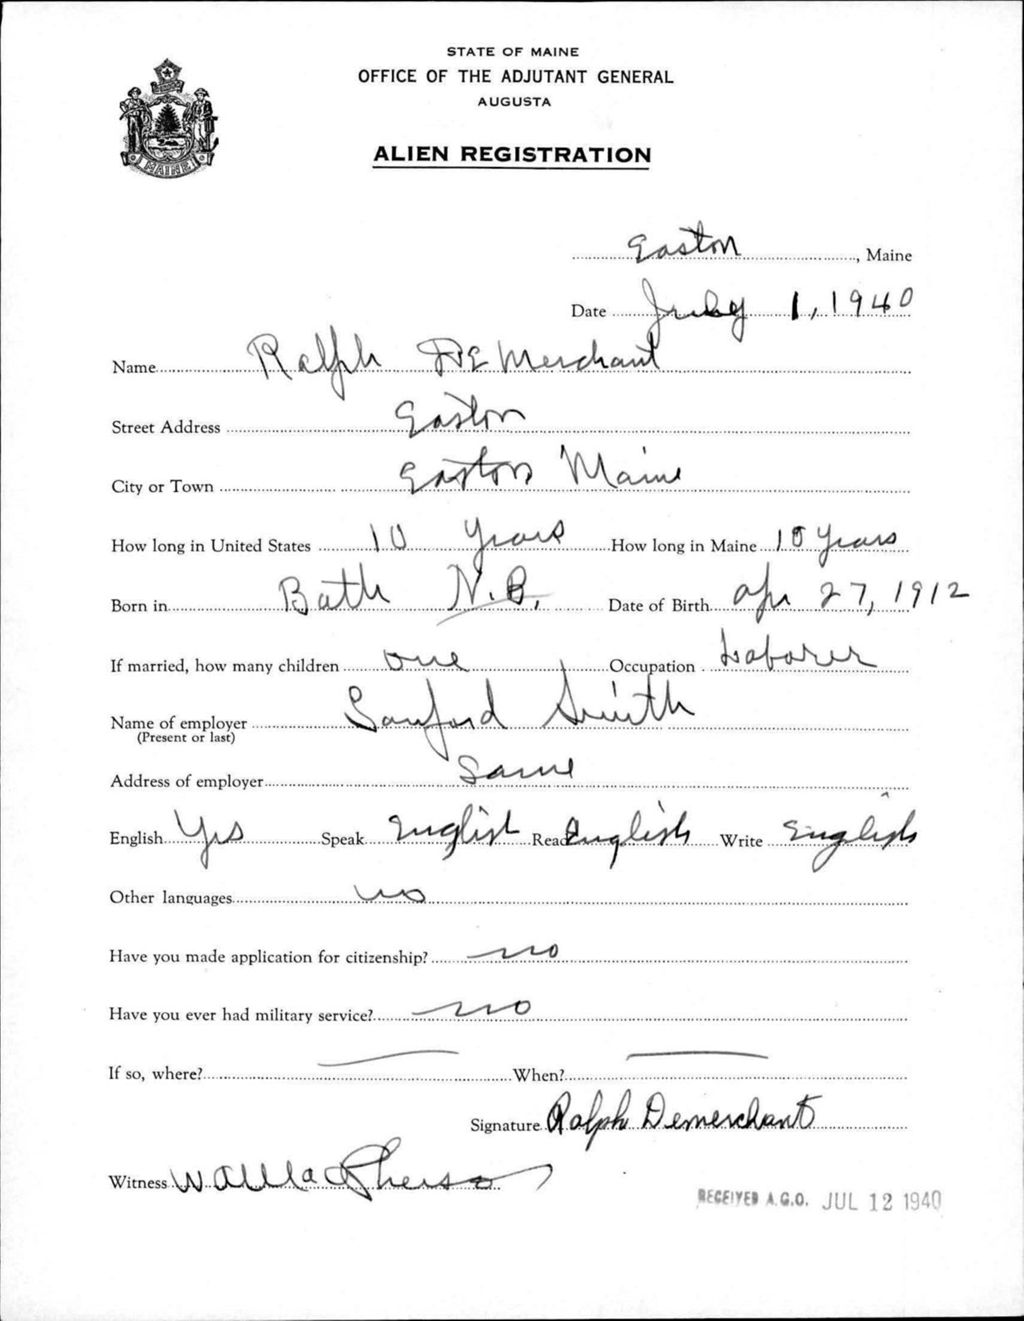 STATE OF MAINE
OFFICE OF THE ADJUTANT GENERAL
AUGUSTA
ALIEN REGISTRATION
MAINE
Easton, Maine
Date July 1, 1940
Name Ralph DeMerchant
Street Address Easton
City or Town Easton Maine
How long in United States 10 years How long in Maine 10 years
Born in Bath N.B. Date of Birth Apr 27, 1912
If married, how many children one Occupation Laborer
Name of employer Sanford Smith
(Present or last)
Address of employer Same
English Yes Speak English Read English Write English
Other languages no
Have you made application for citizenship? no
Have you ever had military service? no
If so, where? — When? —
Signature Ralph Demerchant
Witness
RECEIVED A.G.O. JUL 12 1940